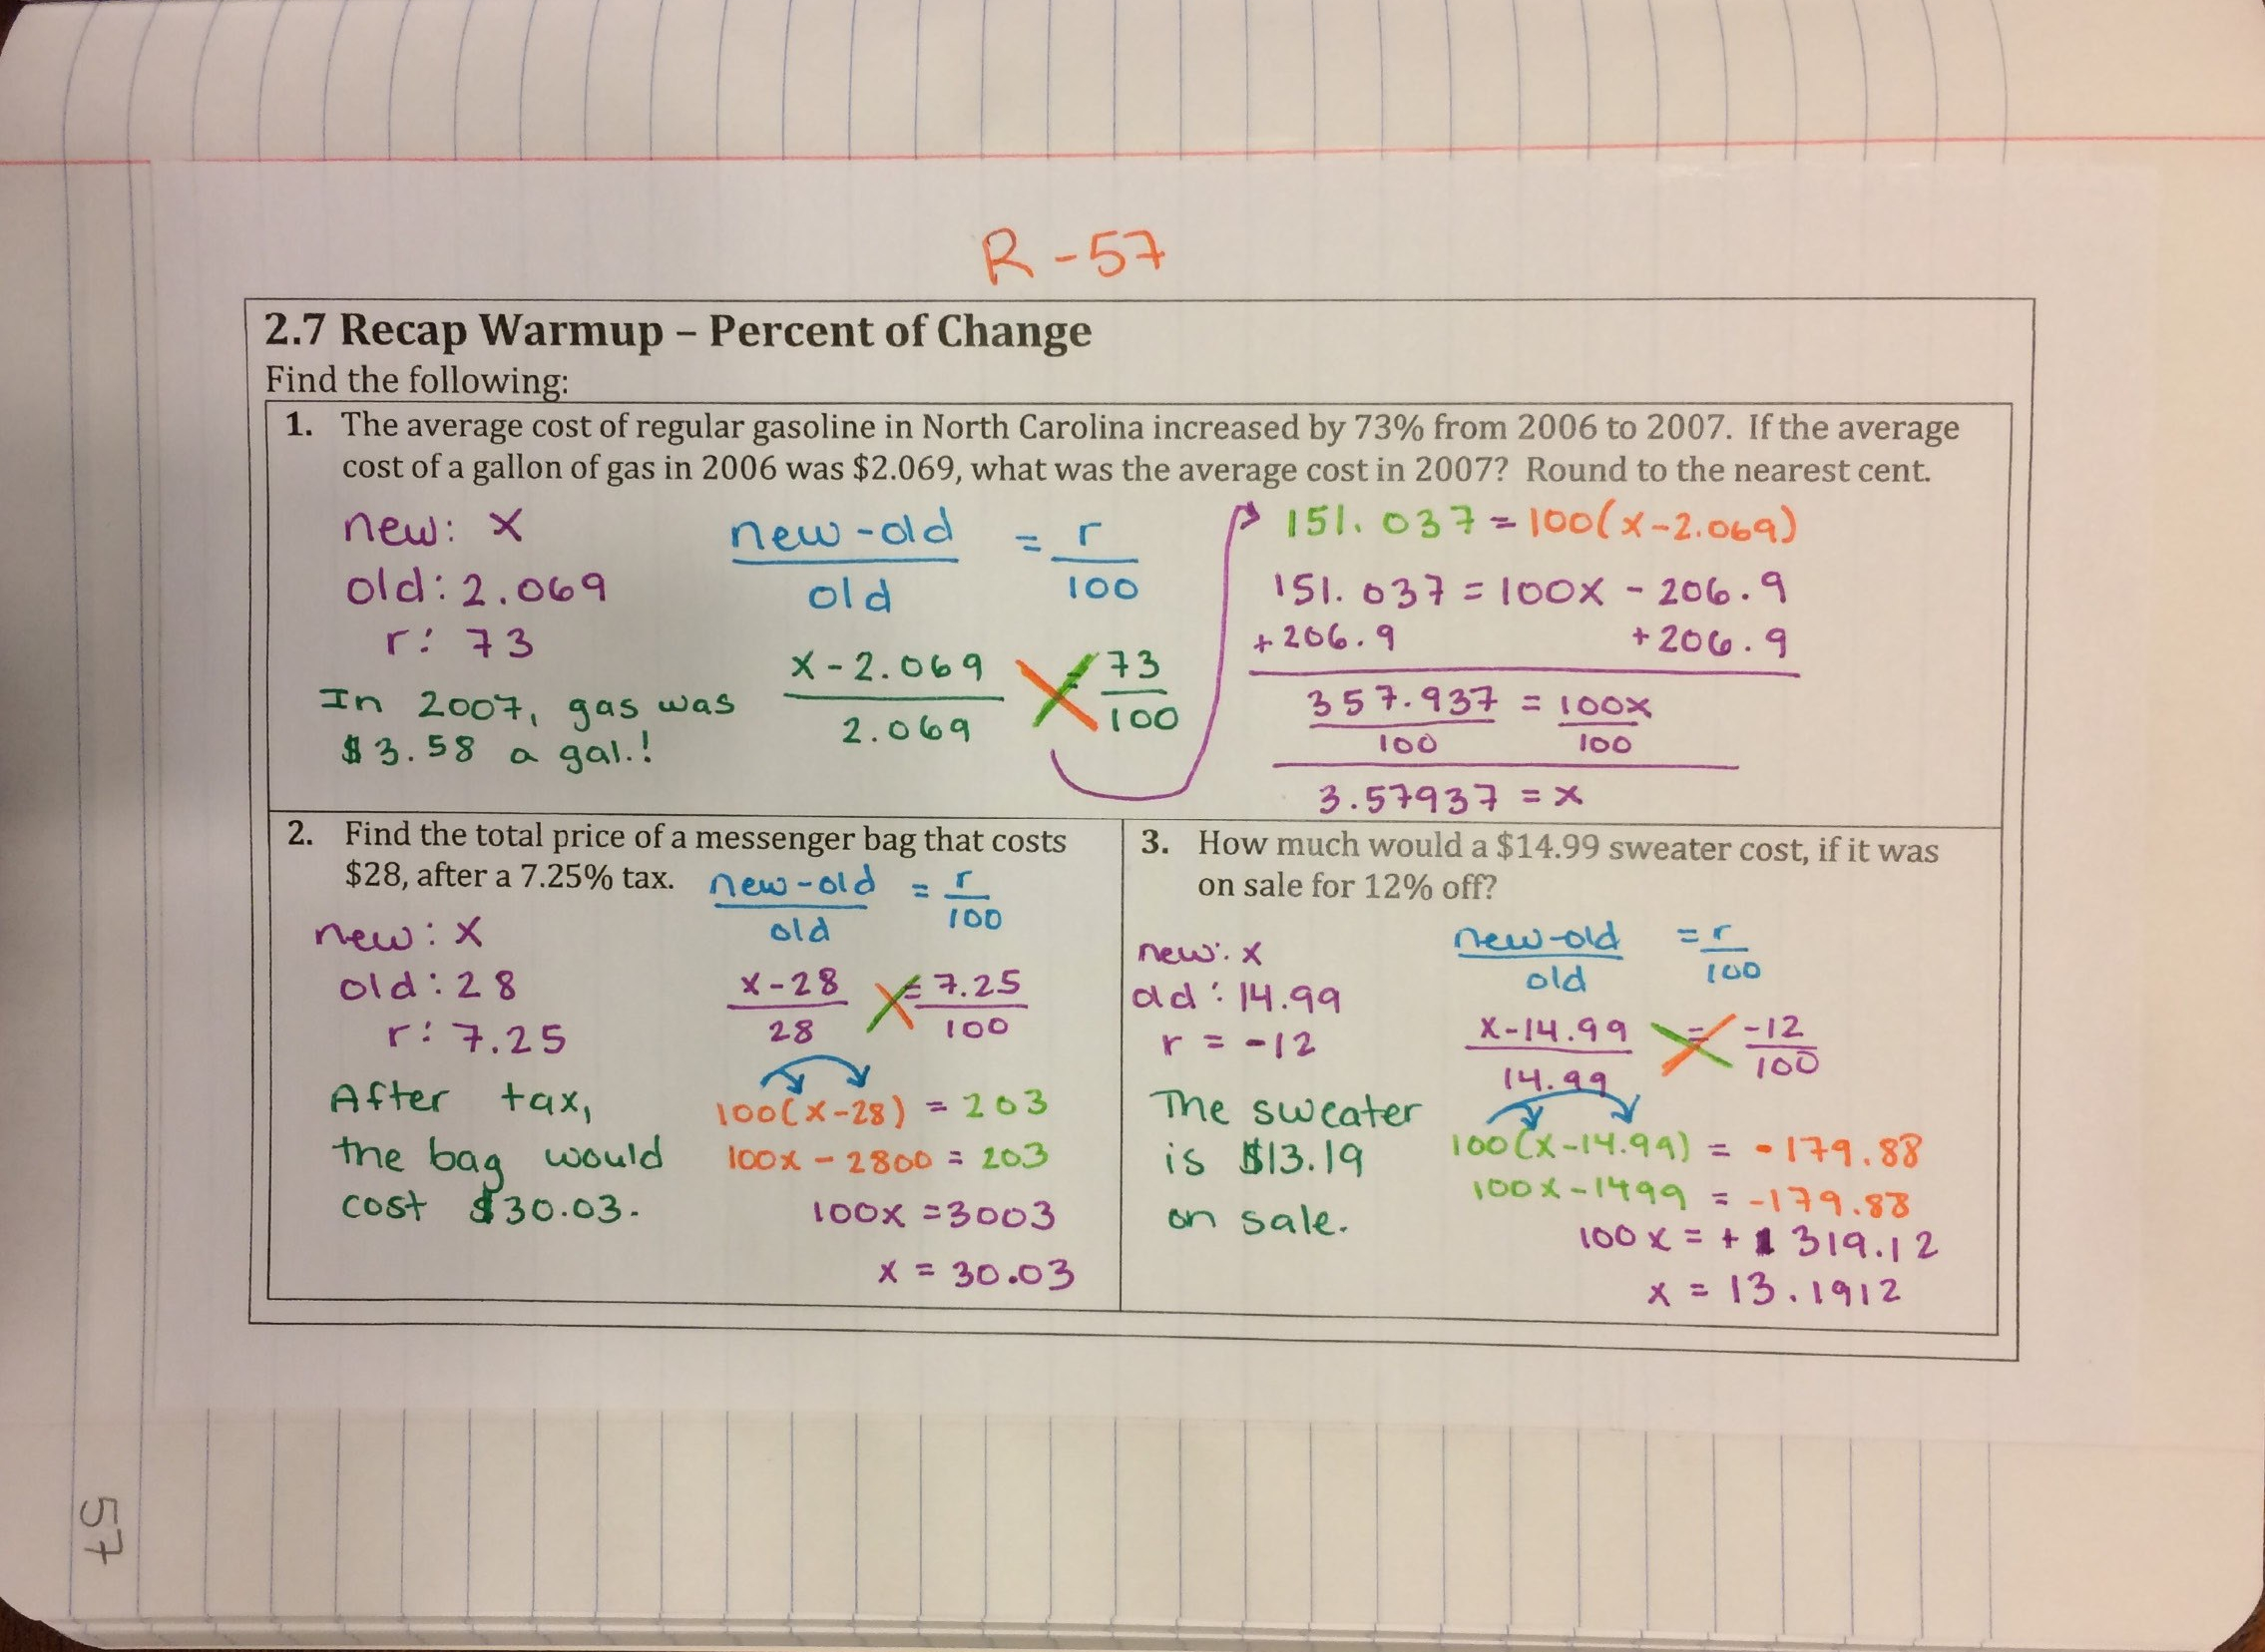 R-57
2.7 Recap Warmup – Percent of Change
Find the following:
1. The average cost of regular gasoline in North Carolina increased by 73% from 2006 to 2007. If the average
cost of a gallon of gas in 2006 was $2.069, what was the average cost in 2007? Round to the nearest cent.
new: x
old: 2.069
r: 73
In 2007, gas was
$3.58 a gal.!
new-old = r
old 100
x-2.069 = 73
2.069 100
151.037 = 100(x-2.069)
151.037 = 100x - 206.9
+206.9 +206.9
357.937 = 100x
100 100
3.57937 = x
2. Find the total price of a messenger bag that costs
$28, after a 7.25% tax.
new-old = r
old 100
new: x
old: 28
r: 7.25
x-28 = 7.25
28 100
After tax,
the bag would
cost $30.03.
100(x-28) = 203
100x - 2800 = 203
100x = 3003
x = 30.03
3. How much would a $14.99 sweater cost, if it was
on sale for 12% off?
new: x
old: 14.99
r = -12
new-old = r
old 100
x-14.99 = -12
14.99 100
The sweater
is $13.19
on sale.
100(x-14.99) = -179.88
100x-1499 = -179.88
100x = +1319.12
x = 13.1912
57